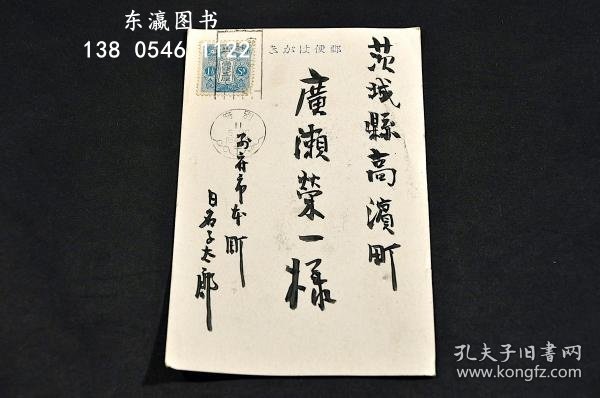 东瀛图书
138 0546 1122
郵便はがき
茨城縣高濱町
廣瀬榮一様
別府市本町
日名子太郎
孔夫子旧书网
www.kongfz.com